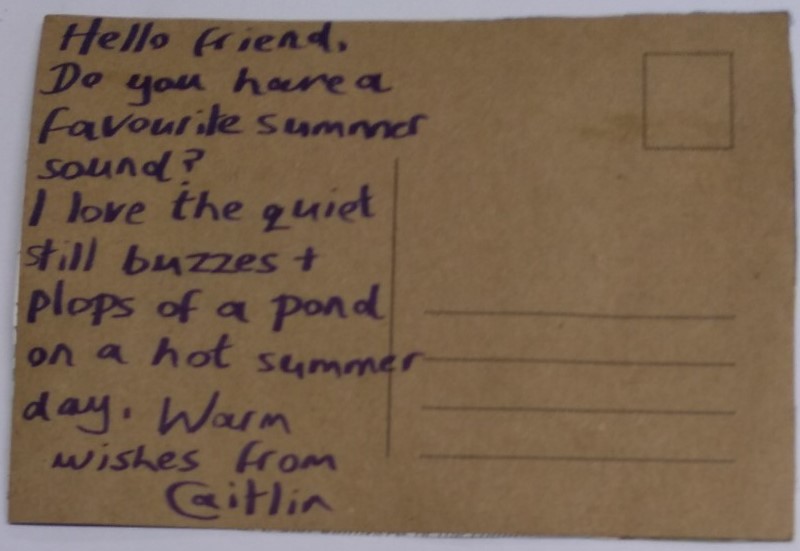 Hello friend.
Do you have a
favourite summer
sound?
I love the quiet
still buzzes +
plops of a pond
on a hot summer
day. Warm
wishes from
Caitlin